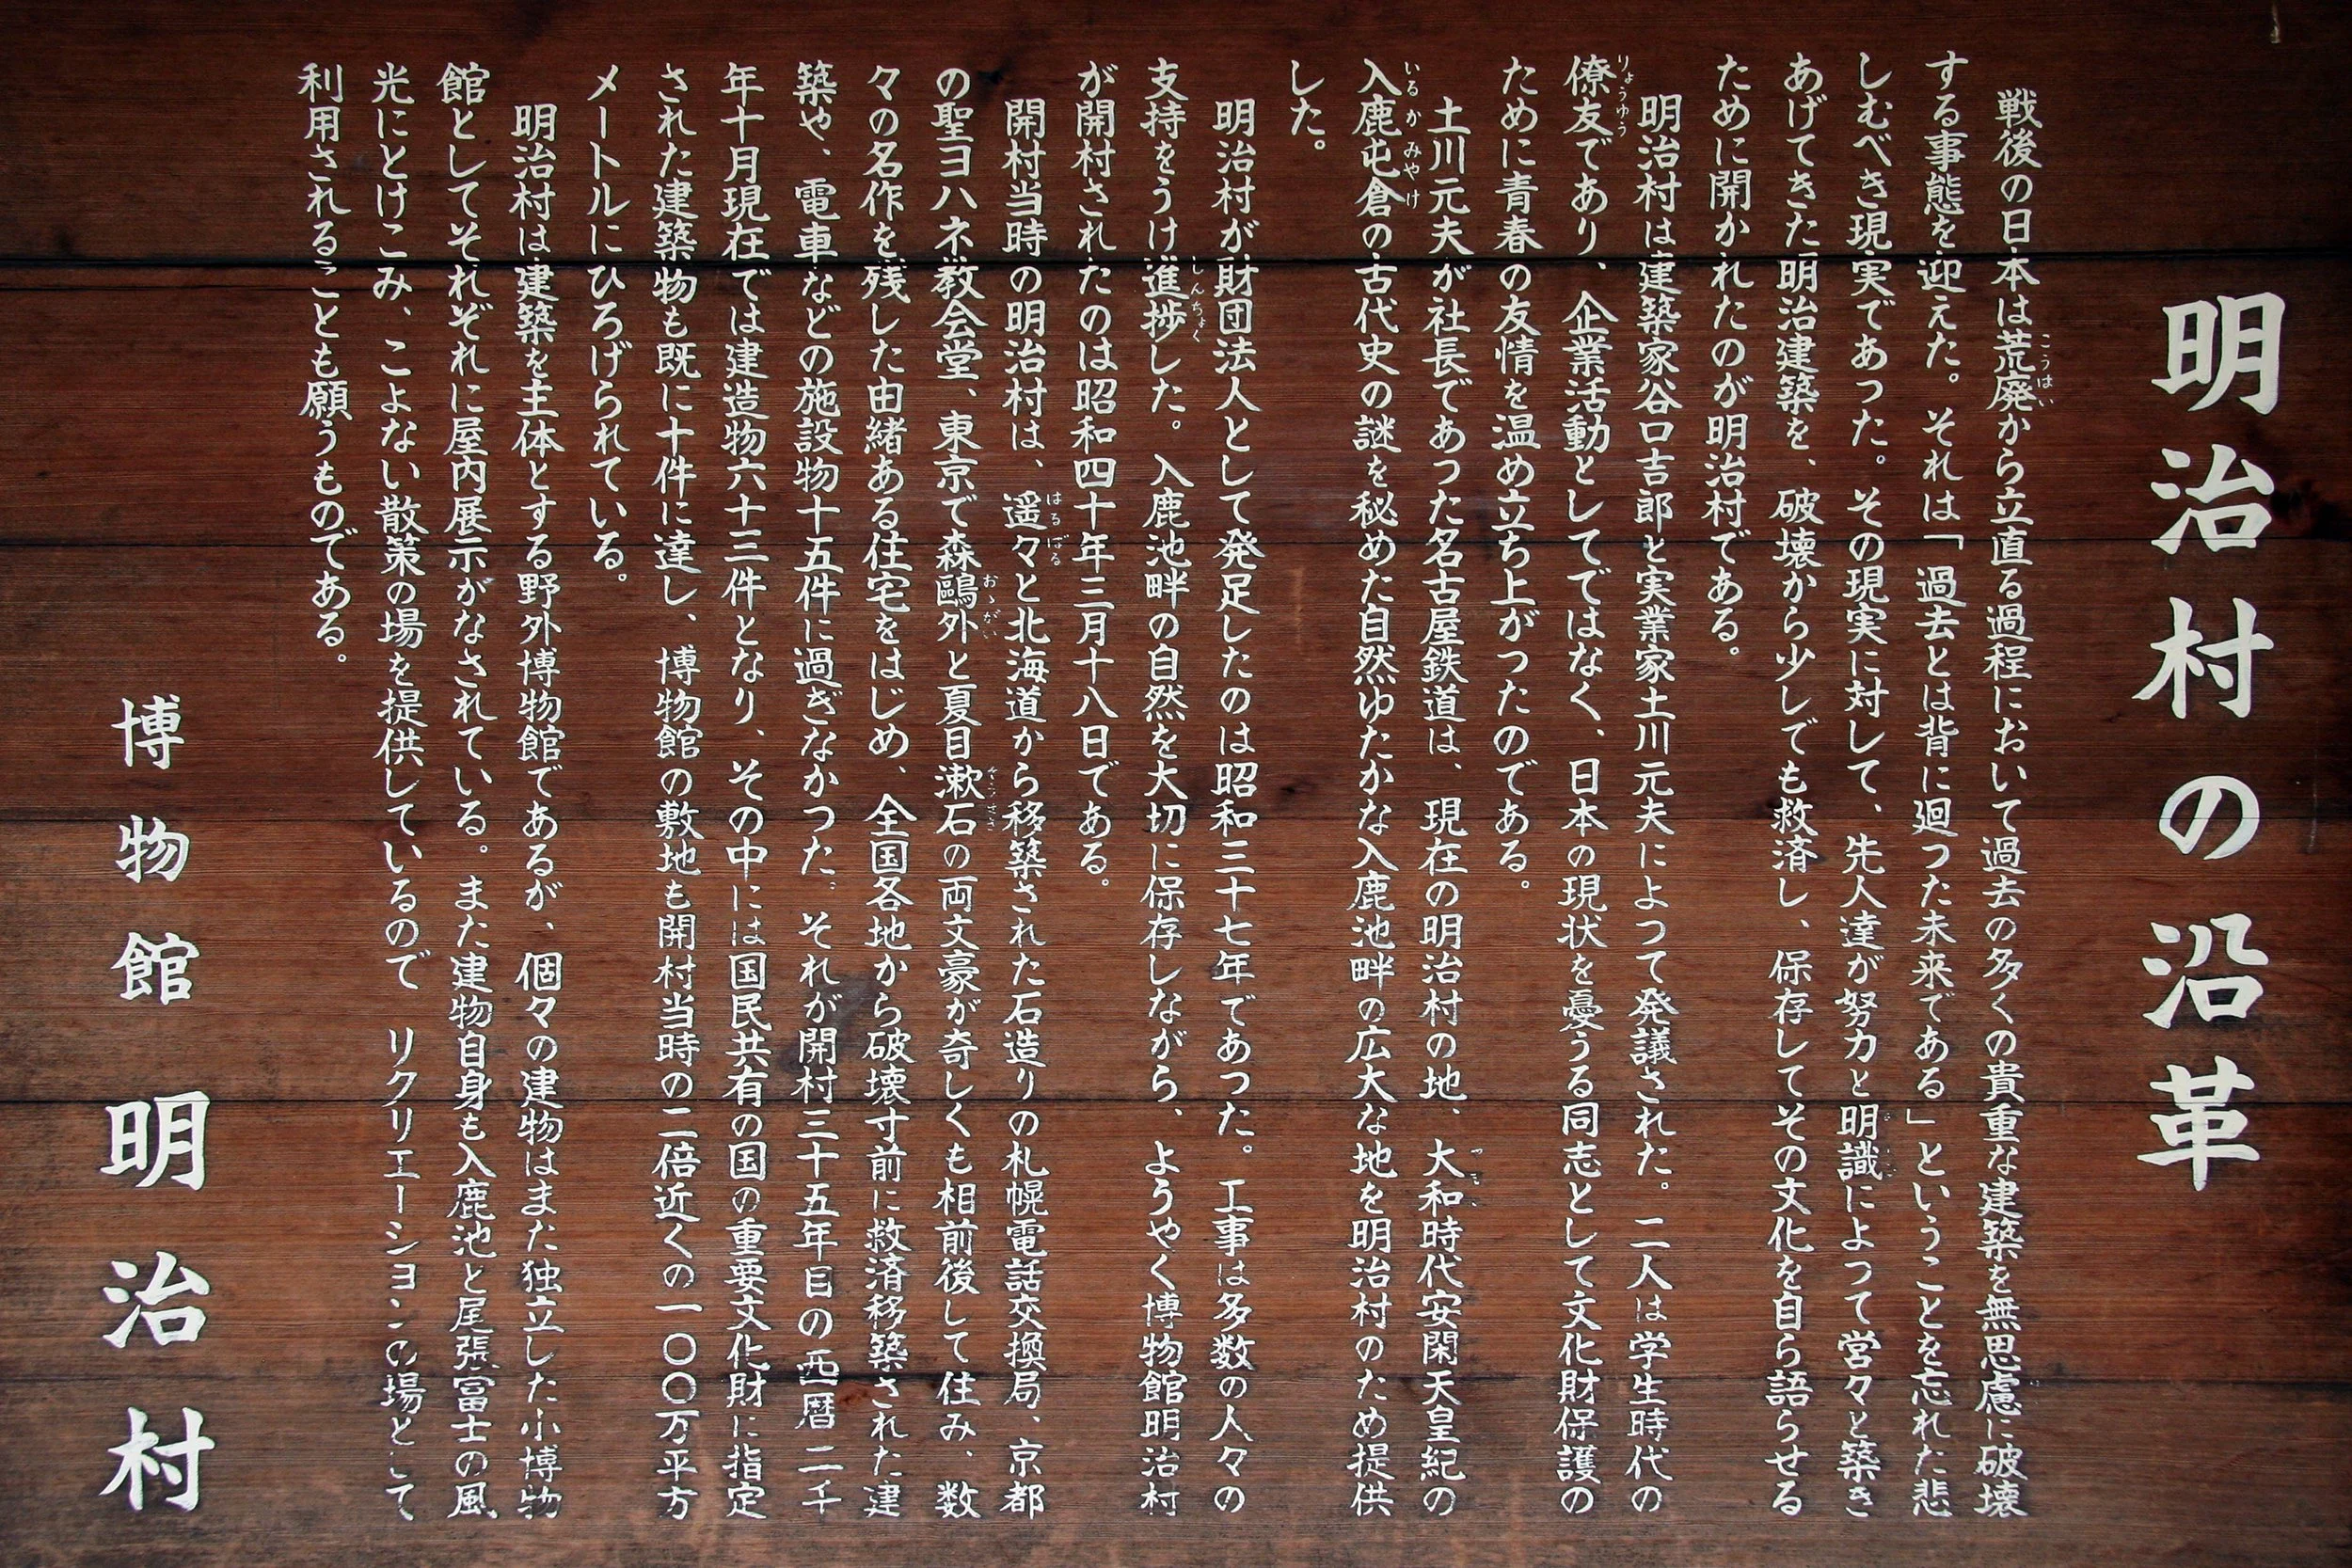 明治村の沿革
戦後の日本は荒廃から立直る過程において過去の多くの貴重な建築を無思慮に破壊
する事態を迎えた。それは「過去とは背に廻つた未来である」ということを忘れた悲
しむべき現実であつた。その現実に対して、先人達が努力と明識によつて営々と築き
あげてきた明治建築を、破壊から少しでも救済し、保存してその文化を自ら語らせる
ために開かれたのが明治村である。
明治村は建築家谷口吉郎と実業家土川元夫によつて発議された。二人は学生時代の
僚友であり、企業活動としてではなく、日本の現状を憂うる同志として文化財保護の
ために青春の友情を温め立ち上がつたのである。
土川元夫が社長であつた名古屋鉄道は、現在の明治村の地、大和時代安閑天皇紀の
入鹿屯倉の古代史の謎を秘めた自然ゆたかな入鹿池畔の広大な地を明治村のため提供
した。
明治村が財団法人として発足したのは昭和三十七年であつた。工事は多数の人々の
支持をうけ進捗した。入鹿池畔の自然を大切に保存しながら、ようやく博物館明治村
が開村されたのは昭和四十年三月十八日である。
開村当時の明治村は、遥々と北海道から移築された石造りの札幌電話交換局、京都
の聖ヨハネ教会堂、東京で森鷗外と夏目漱石の両文豪が奇しくも相前後して住み、数
々の名作を残した由緒ある住宅をはじめ、全国各地から破壊寸前に救済移築された建
築や、電車などの施設物十五件に過ぎなかつた。それが開村三十五年目の西暦二千
年十月現在では建造物六十三件となり、その中には国民共有の国の重要文化財に指定
された建築物も既に十件に達し、博物館の敷地も開村当時の二倍近くの一〇〇万平方
メートルにひろげられている。
明治村は建築を主体とする野外博物館であるが、個々の建物はまた独立した小博物
館としてそれぞれに屋内展示がなされている。また建物自身も入鹿池と尾張冨士の風
光にとけこみ、こよない散策の場を提供しているので リクリエーションの場として
利用されることも願うものである。
博物館 明治村